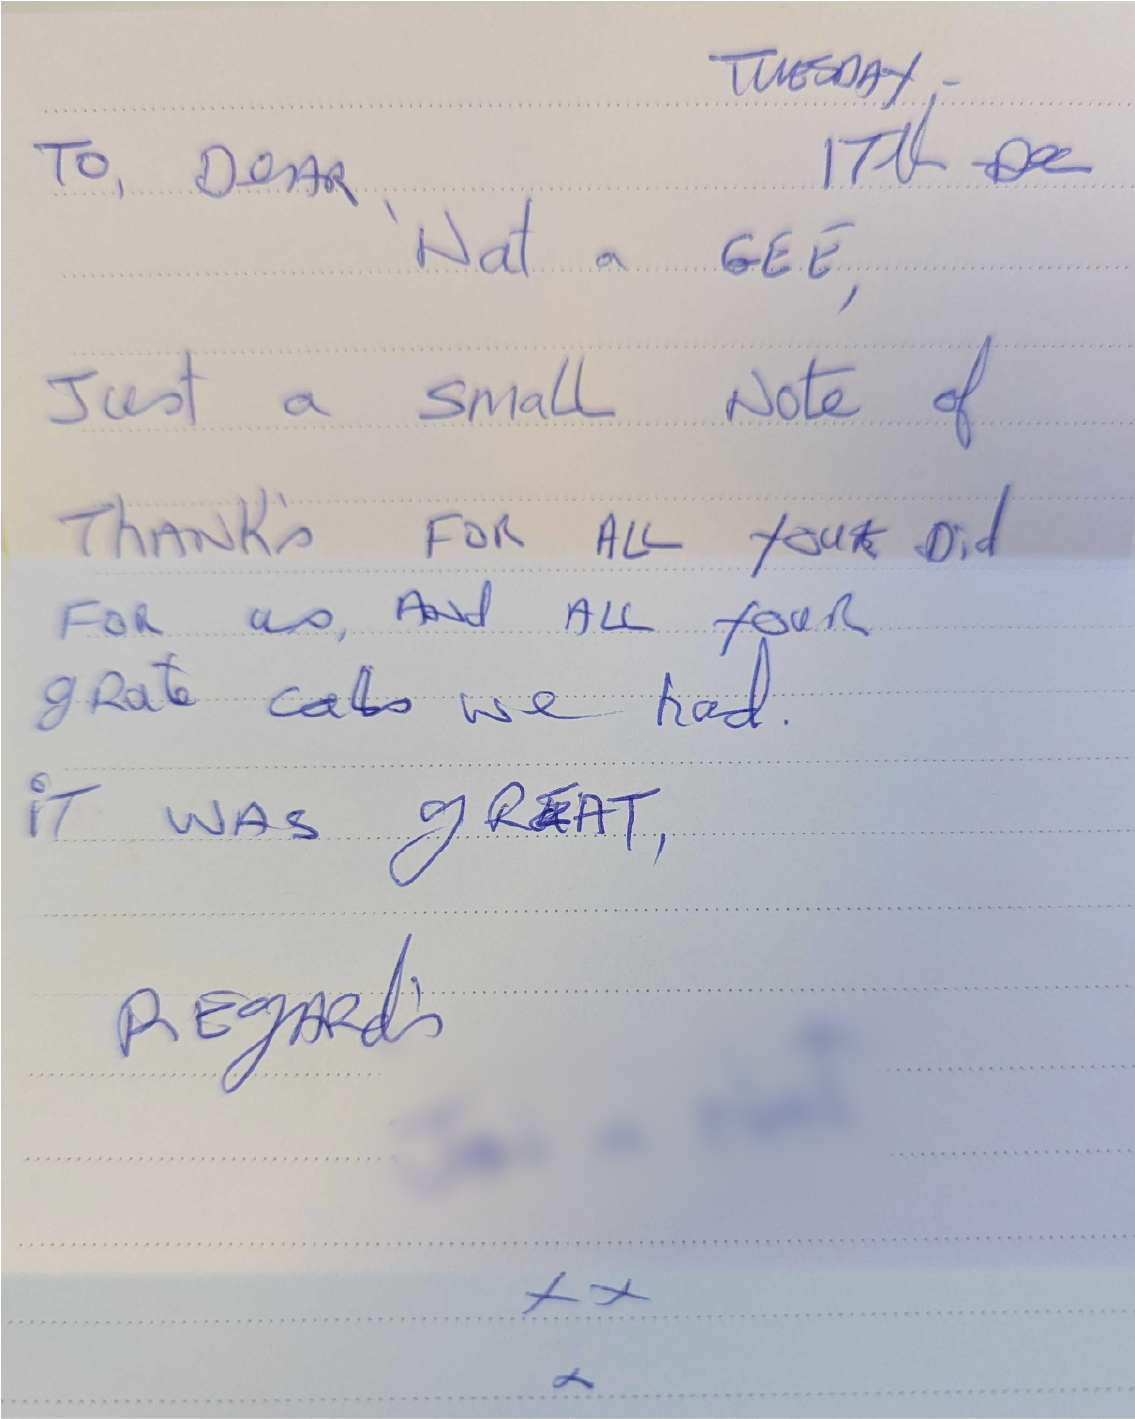 TUESDAY,-
To, Dear, 17th Dec
Nat a GEE,
Just a small Note of
Thank's FOR ALL your Did
FOR us, And ALL your
grate cabs we had.
iT WAS gREAT,
REgARd's
x x
x